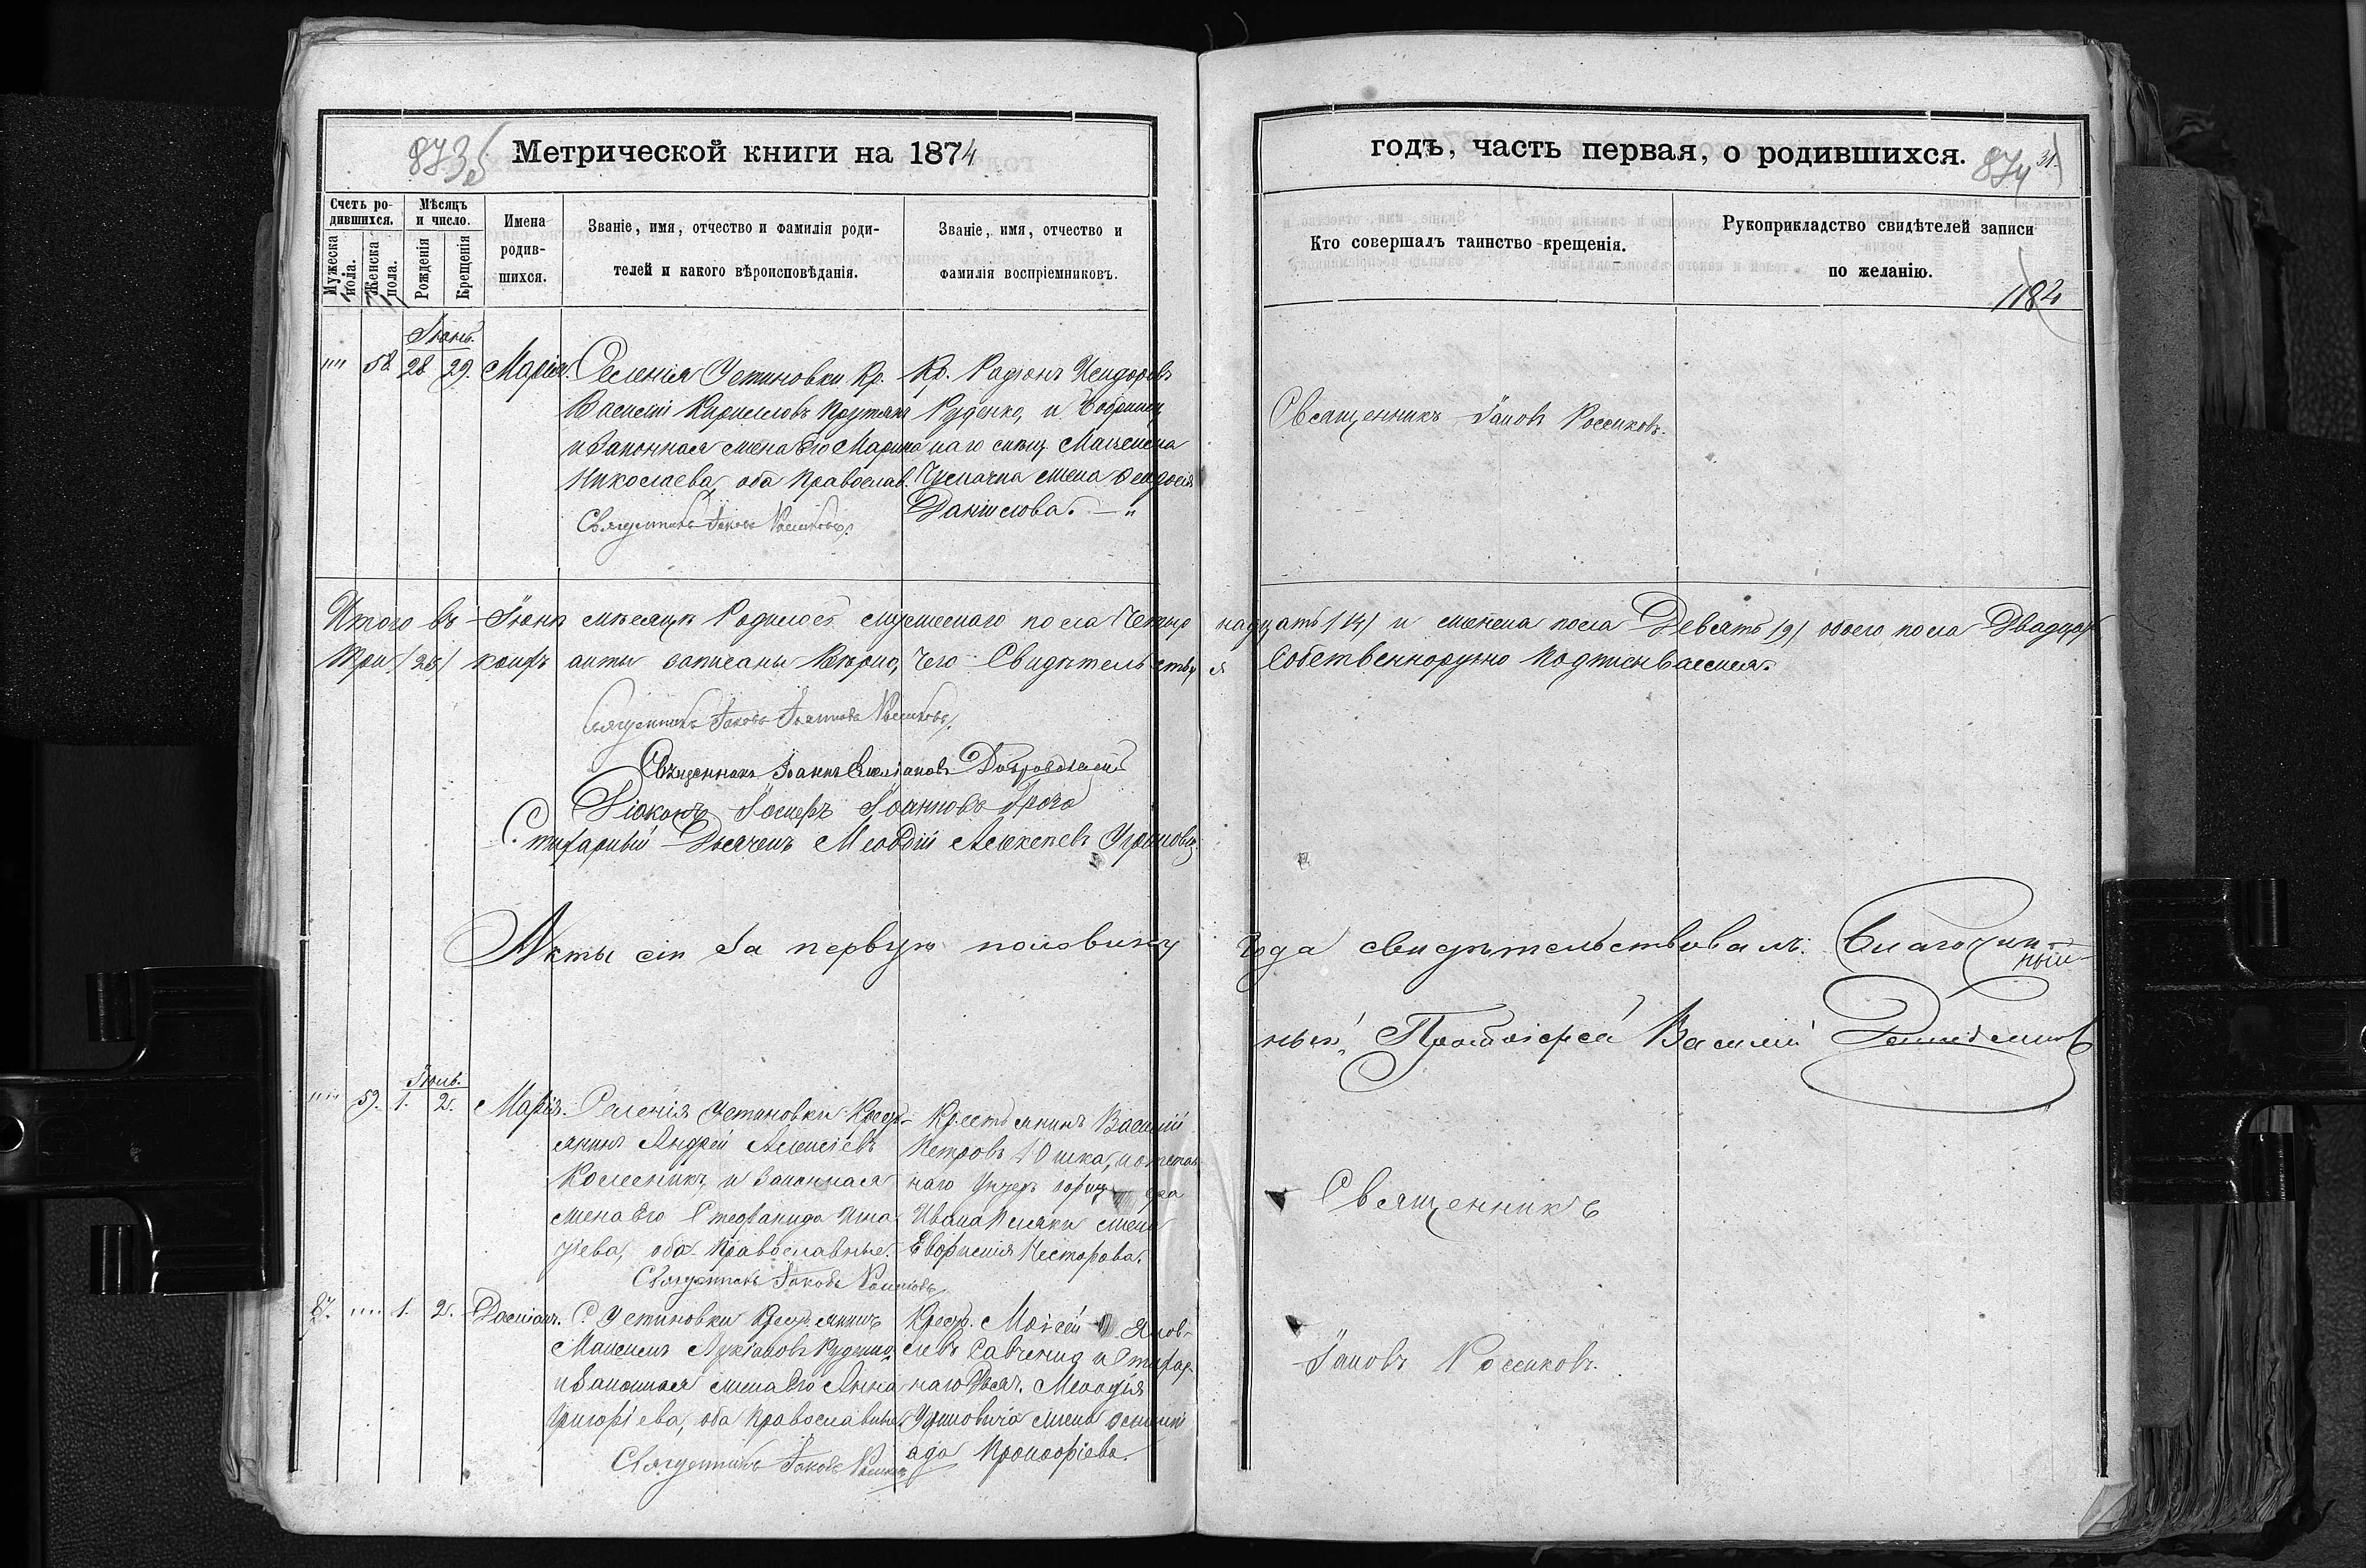 873
Метрической книги на 1874
годъ, часть первая, о родившихся.
874
31.
Счетъ ро-
дившихся.
Мѣсяцъ
и число.
Мужеска
пола.
Женска
пола.
Рожденія
Крещенія
Имена
родив-
шихся.
Званіе, имя, отчество и фамилія роди-
телей и какого вѣроисповѣданія.
Званіе, имя, отчество и
фамилія воспріемниковъ.
Кто совершалъ таинство крещенія.
Рукоприкладство свидѣтелей записи
по желанію.
1182
Іюнь.
"" 58. 28. 29. Марія.
Селенія Устиновки Кр.
Василій Кирилловъ
и Законная жена Его Марина
Николаева, оба Православ.
Священникъ Іаковъ Россиковъ.
Кр. Радіонъ Исидоровъ
Руденко, и Бобринец
каго мѣщ. Максима
жена Феодосія
Даніилова. — "
Священникъ Іаковъ Россиковъ.
Итого въ Іюнѣ мѣсяцѣ Родилось мужескаго пола Четыр надцать /14/ и женска пола Девять /9/ обоего пола Двадцать
три /23/ коихъ акты записаны Вѣрно, Чего Свидѣтельству я Собственноручно Подписываемся.
Священникъ Іаковъ Іоанновъ Россиковъ.
Священникъ Іоаннъ Добровольскій
Діаконъ Іосифъ Іоанновъ
Стихарный Дьячекъ Меѳодій Алексѣевъ Угриновичъ.
Акты сіи за первую половину года свидѣтельствовалъ: Благочин-
ный
ный, Протоіерей Василій
Іюль.
"" 59. 1. 2. Марія.
Селенія Устиновки Крест-
янинъ Андрей Алексіевъ
Колесникъ, и Законная
жена Его Стефанида Игна
тіева, оба Православные.
Священникъ Іаковъ Россиковъ
Крестьянинъ Василій
Петровъ Юшка, и отстав
наго Унтеръ офиц ера
Ивана жена
Евфимія Несторова.
Священникъ
87. "" 1. 2. Даміанъ.
С. Устиновки Крестьянинъ
Максимъ Лукіановъ Руденко,
и Законная жена Его Анна
Григоріева, оба Православные
Священникъ Іаковъ Россиковъ
Крест. Моісей Яков-
левъ Савченко и Стихар-
наго Дьяч. Меѳодія
Угриновича жена
ада Прокофіева.
Іаковъ Россиковъ.